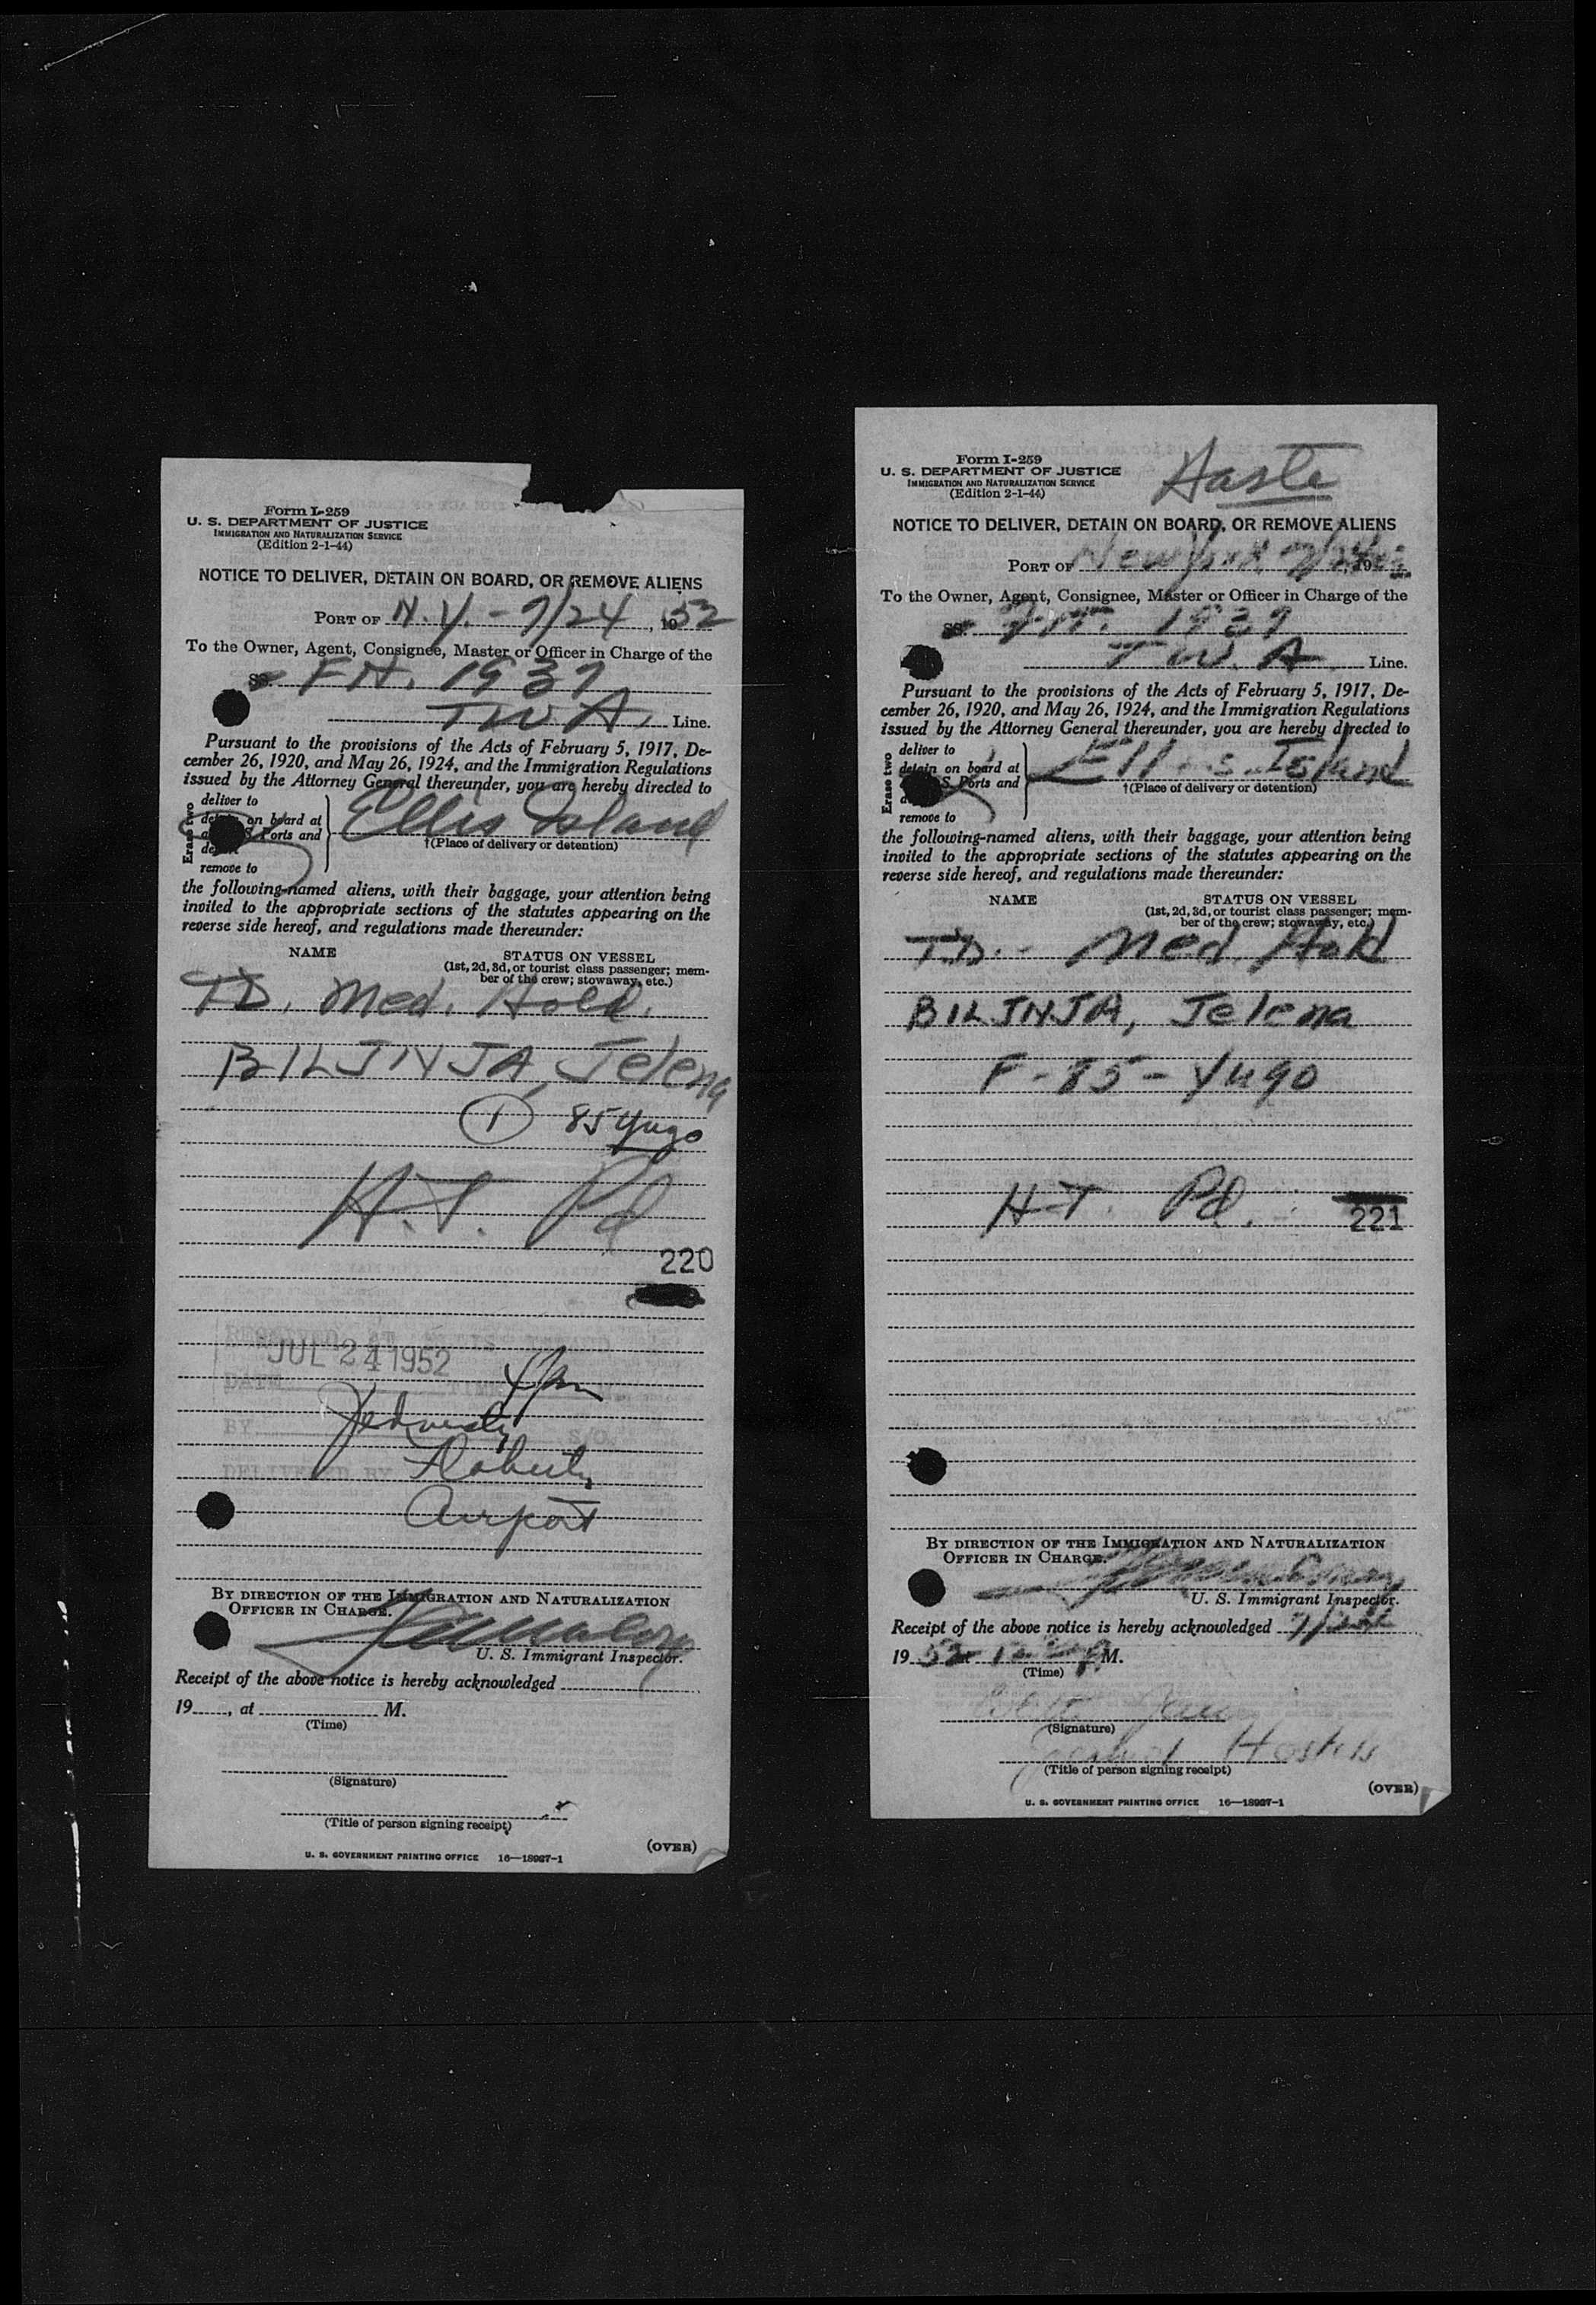 Form I-259
U. S. DEPARTMENT OF JUSTICE
IMMIGRATION AND NATURALIZATION SERVICE
(Edition 2-1-44)
NOTICE TO DELIVER, DETAIN ON BOARD, OR REMOVE ALIENS
PORT OF N.Y. - 7/24, 1952
To the Owner, Agent, Consignee, Master or Officer in Charge of the
SS. 1937
TWA. Line.
Pursuant to the provisions of the Acts of February 5, 1917, De-
cember 26, 1920, and May 26, 1924, and the Immigration Regulations
issued by the Attorney General thereunder, you are hereby directed to
Erase two
deliver to
on board at
S. Ports and
remove to
Ellis Island
†(Place of delivery or detention)
the following-named aliens, with their baggage, your attention being
invited to the appropriate sections of the statutes appearing on the
reverse side hereof, and regulations made thereunder:
NAME STATUS ON VESSEL
(1st, 2d, 3d, or tourist class passenger; mem-
ber of the crew; stowaway, etc.)
T.D. Med. Hold.
BILJNJA, Jelena
1 85 Yugo
H.T. Pd
220
JUL 24 1952
DATE TIME
4 pm
BY S/O.
DELIVERED BY
Airport
BY DIRECTION OF THE IMMIGRATION AND NATURALIZATION
OFFICER IN CHARGE.
U. S. Immigrant Inspector.
Receipt of the above notice is hereby acknowledged
19, at M.
(Time)
(Signature)
(Title of person signing receipt)
(OVER)
U. S. GOVERNMENT PRINTING OFFICE 16—18927-1
Form I-259
U. S. DEPARTMENT OF JUSTICE
IMMIGRATION AND NATURALIZATION SERVICE
(Edition 2-1-44)
Haste
NOTICE TO DELIVER, DETAIN ON BOARD, OR REMOVE ALIENS
PORT OF New York 7/24
To the Owner, Agent, Consignee, Master or Officer in Charge of the
SS. 1937
T.W.A. Line.
Pursuant to the provisions of the Acts of February 5, 1917, De-
cember 26, 1920, and May 26, 1924, and the Immigration Regulations
issued by the Attorney General thereunder, you are hereby directed to
Erase two
deliver to
detain on board at
S. Ports and
remove to
Ellis Island
†(Place of delivery or detention)
the following-named aliens, with their baggage, your attention being
invited to the appropriate sections of the statutes appearing on the
reverse side hereof, and regulations made thereunder:
NAME STATUS ON VESSEL
(1st, 2d, 3d, or tourist class passenger; mem-
ber of the crew; stowaway, etc.)
T.D. - Med. Hold
BILJNJA, Jelena
F - 85 - Yugo
H.T. Pd.
221
BY DIRECTION OF THE IMMIGRATION AND NATURALIZATION
OFFICER IN CHARGE.
U. S. Immigrant Inspector.
Receipt of the above notice is hereby acknowledged 7/24
1952 M.
(Time)
(Signature)
(Title of person signing receipt)
(OVER)
U. S. GOVERNMENT PRINTING OFFICE 16—18927-1